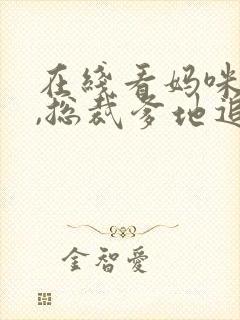 在綫看妈咪
,总裁爹地追
金智愛